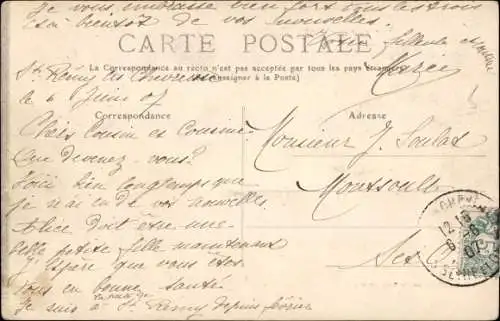 Je vous embrasse bien fort tous les trois
à bientôt de vos nouvelles.
Votre filleule et
Marie
CARTE POSTALE
La Correspondance au recto n'est pas acceptée par tous les pays étrangers
(Se renseigner à la Poste)
Correspondance
Adresse
St Rémy les Chevreuse
le 6 Juin 07
Chers Cousin et Cousine
Que devenez-vous?
Voici bien longtemps que
je n'ai eu de vos nouvelles.
Alice doit être une
belle petite fille maintenant
J'espère que vous êtes
tous en bonne santé
Je suis à St Rémy depuis février
Monsieur J. Soulas
Montsoult
Set O
12
6-6
07
SEINE-ET